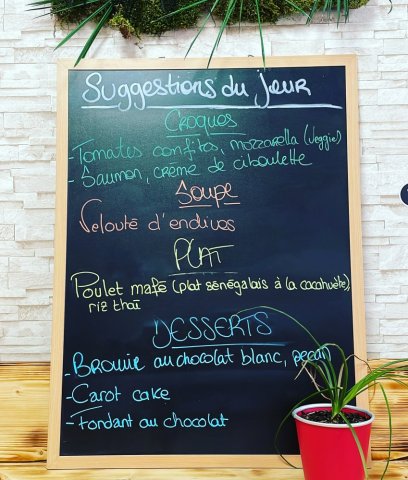 Suggestions du jour
Croques
-Tomates confites, mozzarella (veggie)
- Saumon, crème de ciboulette
Soupe
Velouté d'endives
PLAT
Poulet mafé (plat sénégalais à la cacahuète),
riz thaï
DESSERTS
-Brownie au chocolat blanc, pecan
-Carot cake
-Fondant au chocolat